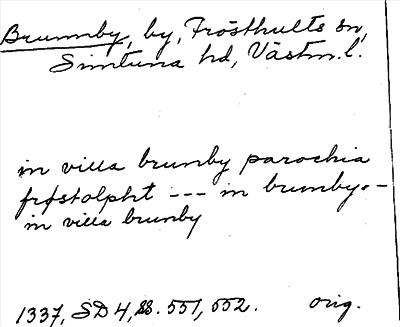 Brunnby, by, Frösthults sn,
Simtuna hd, Västm. l.
in villa brunby parochia
frøstolpht --- in brunby. -
in villa brunby
1337, SD 4, ss. 551, 552. orig.